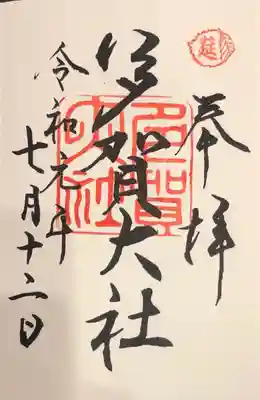 奉拝
多賀大社
多賀
大社
令和元年
七月十二日